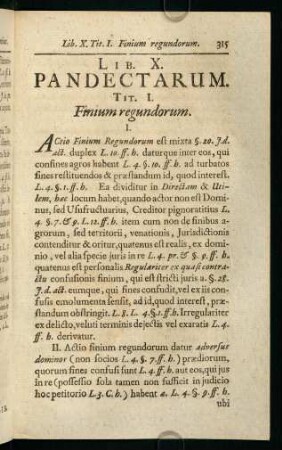 Lib. X. Tit. I. Finium regundorum. 315
LIB. X.
PANDECTARUM.
TIT. I.
Finium regundorum.
I.
ACtio Finium Regundorum est mixta §. 20. J. d.
act. duplex L. 10. ff. h. datur que inter eos, qui
confines agros habent L. 4. §. 10. ff. h. ad turbatos
fines restituendos & præstandum id, quod interest.
L. 4. §. 1. ff. h. Ea dividitur in Directam & Uti-
lem, hæc locum habet, quando actor non est Domi-
nus, sed Usufructuarius, Creditor pignoratitius L.
4. §. 7. & 9. L. 12. ff. h. item cum non de finibus a-
grorum, sed territorii, venationis, Jurisdictionis
contenditur & oritur, quatenus est realis, ex domi-
nio, vel alia specie juris in re L. 4. pr. & §. 9. ff. h.
quatenus est personalis Regulariter ex quasi contra-
ctu confusionis finium, qui est stricti juris a. §. 28.
J. d. act. eumque, qui fines confudit, vel ex iis con-
fusis emolumenta sensit, ad id, quod interest, præ-
standum obstringit. L. 8. L. 4. §. 1. ff. h. Irregulariter
ex delicto, veluti terminis dejectis vel exaratis L. 4.
ff. h. derivatur.
II. Actio finium regundorum datur adversus
dominor (non socios L. 4. §. 7. ff. h.) prædiorum,
quorum fines confusi sunt L. 4. ff. h. aut eos, qui jus
in re (possessio sola tamen non sufficit in judicio
hoc petitorio L. 3. C. h.) habent a. L. 4. §. 9. ff. h.
ubi